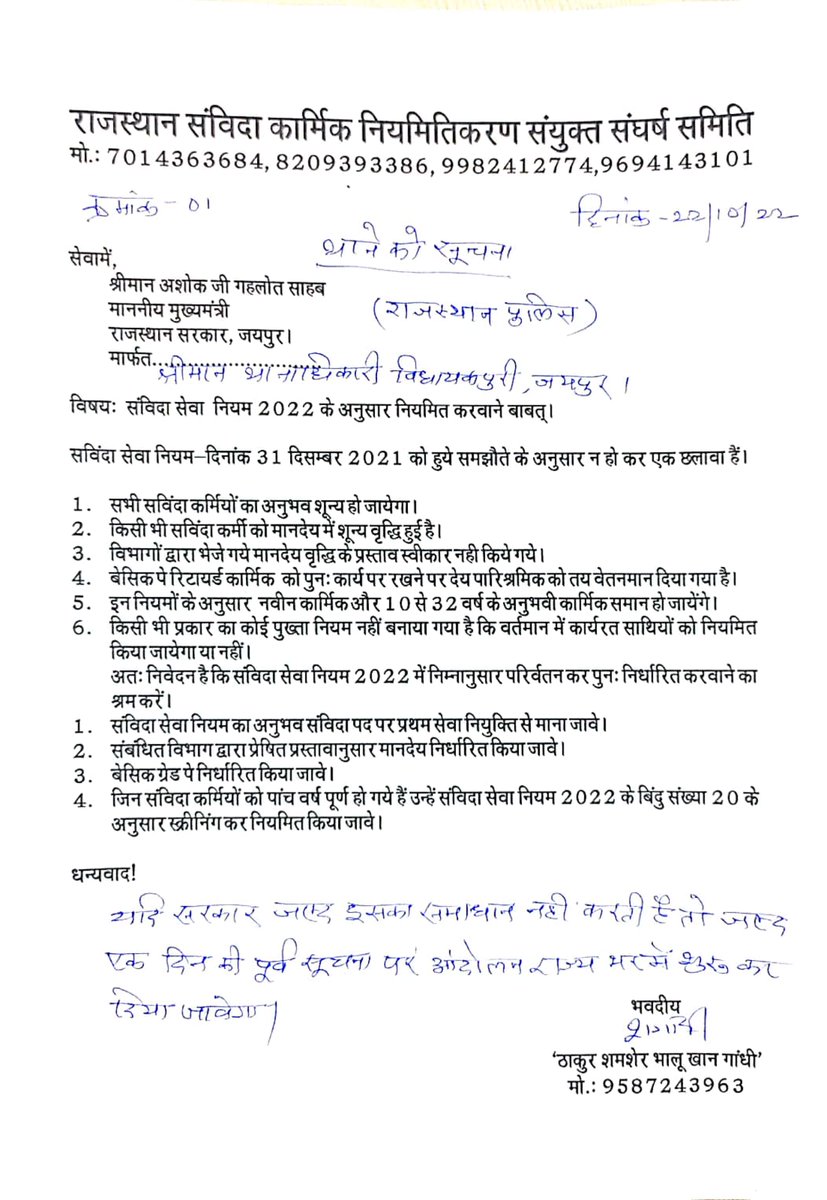 राजस्थान संविदा कार्मिक नियमितिकरण संयुक्त संघर्ष समिति
मो.: 7014363684, 8209393386, 9982412774,9694143101
क्रमांक - 01
दिनांक - 22/10/22
थाने को सूचना
सेवामें,
श्रीमान अशोक जी गहलोत साहब
माननीय मुख्यमंत्री
(राजस्थान पुलिस)
राजस्थान सरकार, जयपुर।
मार्फत.....................
श्रीमान थानाधिकारी विधायकपुरी, जयपुर ।
विषयः संविदा सेवा नियम 2022 के अनुसार नियमित करवाने बाबत्।
सविंदा सेवा नियम–दिनांक 31 दिसम्बर 2021 को हुये समझौते के अनुसार न हो कर एक छलावा हैं।
1. सभी सविंदा कर्मियों का अनुभव शून्य हो जायेगा।
2. किसी भी सविंदा कर्मी को मानदेय में शून्य वृद्धि हुई है।
3. विभागों द्वारा भेजे गये मानदेय वृद्धि के प्रस्ताव स्वीकार नही किये गये।
4. बेसिक पे रिटायर्ड कार्मिक को पुनः कार्य पर रखने पर देय पारिश्रमिक को तय वेतनमान दिया गया है।
5. इन नियमों के अनुसार नवीन कार्मिक और 10 से 32 वर्ष के अनुभवी कार्मिक समान हो जायेंगे।
6. किसी भी प्रकार का कोई पुख्ता नियम नहीं बनाया गया है कि वर्तमान में कार्यरत साथियों को नियमित
किया जायेगा या नहीं।
अतः निवेदन है कि संविदा सेवा नियम 2022 में निम्नानुसार परिर्वतन कर पुनः निर्धारित करवाने का
श्रम करें।
1. संविदा सेवा नियम का अनुभव संविदा पद पर प्रथम सेवा नियुक्ति से माना जावे।
2. संबंधित विभाग द्वारा प्रेषित प्रस्तावानुसार मानदेय निर्धारित किया जावे।
3. बेसिक ग्रेड पे निर्धारित किया जावे।
4. जिन संविदा कर्मियों को पांच वर्ष पूर्ण हो गये हैं उन्हें संविदा सेवा नियम 2022 के बिंदु संख्या 20 के
अनुसार स्क्रीनिंग कर नियमित किया जावे।
धन्यवाद!
यदि सरकार जल्द इसका समाधान नही करती है तो जल्द
एक दिन की पूर्व सूचना पर आंदोलन राज्य भर में शुरू कर
दिया जावेगा।
भवदीय
‘ठाकुर शमशेर भालू खान गांधी’
मो.: 9587243963